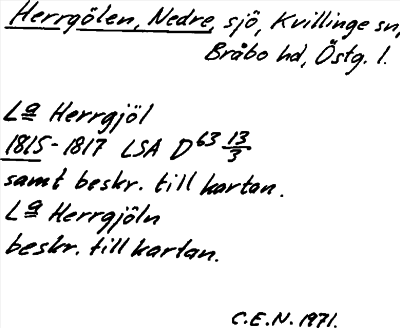 Herrgölen, Nedre, sjö, Kvillinge sn,
Bråbo hd, Östg. l.
La Herrgjöl
1815-1817 LSA D63 13/3
samt beskr. till kartan.
La Herrgjöln
beskr. till kartan.
C.E.N. 1971.